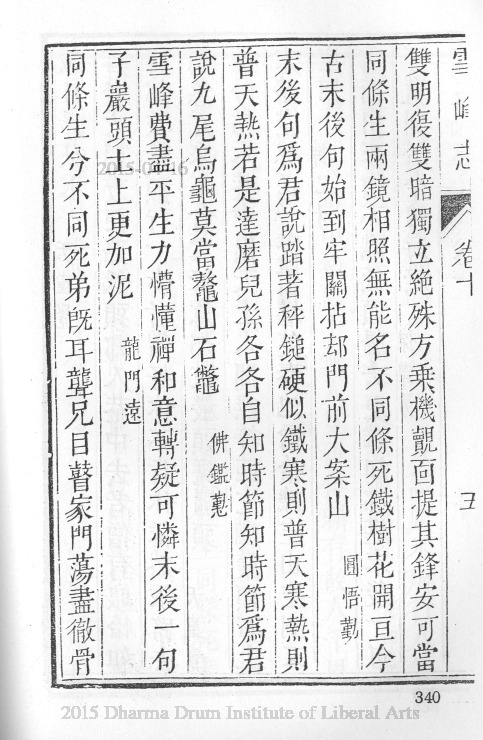 雪峰志 卷十 五
雙明復雙暗獨立絶殊方乘機覿面提其鋒安可當
同條生兩鏡相照無能名不同條死鐵樹花開亘今
古末後句始到牢關拈却門前大案山
圓悟勤
末後句爲君說踏著秤鎚硬似鐵寒則普天寒熱則
普天熱若是達磨兒孫各各自知時節知時節爲君
說九尾烏龜莫當鼇山石鼈
佛鑑懃
雪峰費盡平生力懵懂禪和意轉疑可憐末後一句
子巖頭土上更加泥
龍門遠
同條生兮不同死弟旣耳聾兄目瞽家門蕩盡徹骨
340
2015-04-16
2015 Dharma Drum Institute of Liberal Arts